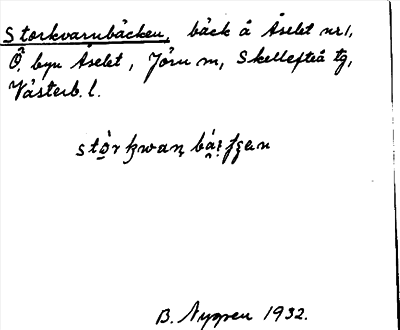 Storkvarnbäcken, bäck å Åselet nr 1,
Ö. byn Åselet, Jörn sn, Skellefteå tg,
Västerb. l.
B. Nygren 1932.